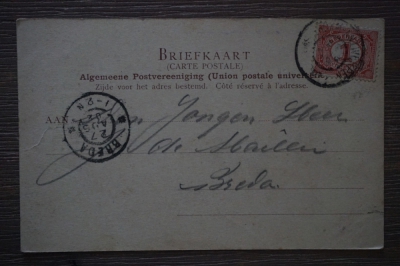 BRIEFKAART
(CARTE POSTALE)
Algemeene Postvereeniging (Union postale universelle)
Zijde voor het adres bestemd. Côté réservé à l'adresse.
AAN
Jongen Heer
de
Breda
BREDA
11-12N
27
AUG